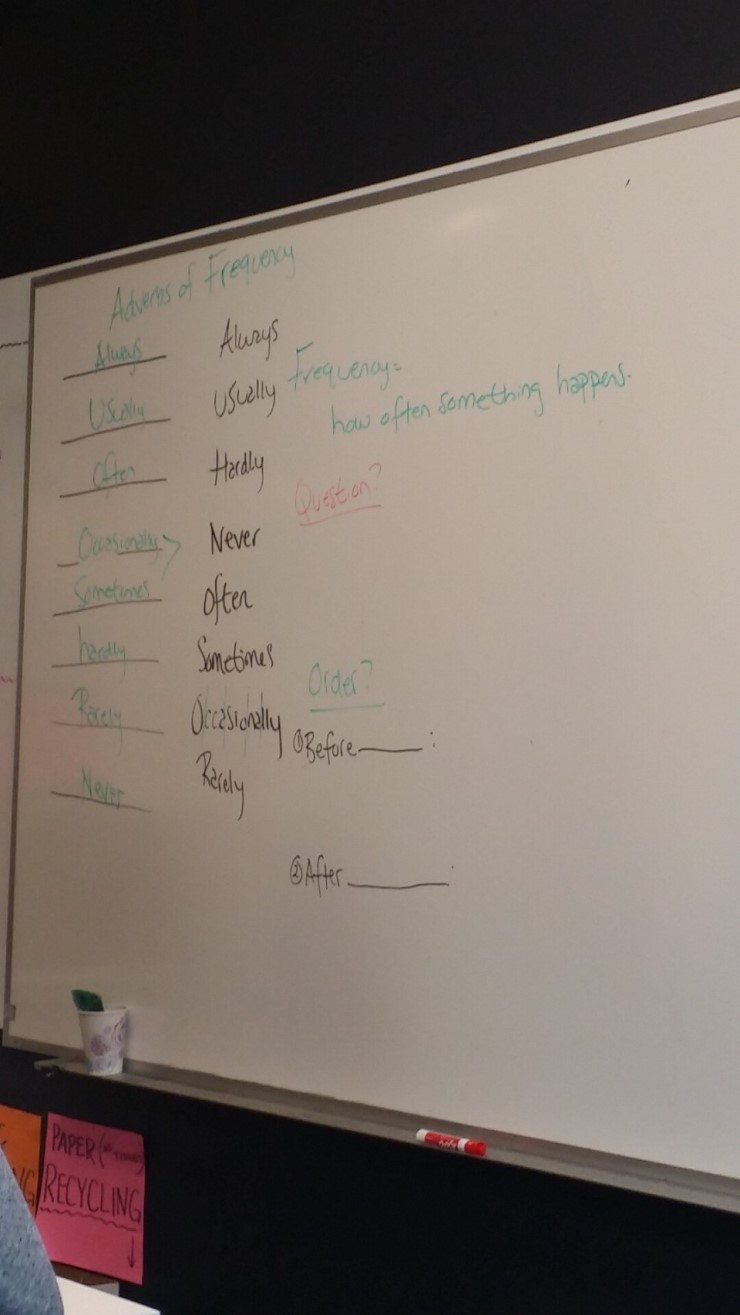 Adverbs of Frequency
Always
Usually
Often
Occasionally >
Sometimes
hardly
Rarely
Never
Always
Usually
Hardly
Never
Often
Sometimes
Occasionally
Rarely
Frequency =
how often something happens.
Question?
Order?
① Before ______ :
② After ______ .
PAPER
RECYCLING
↓